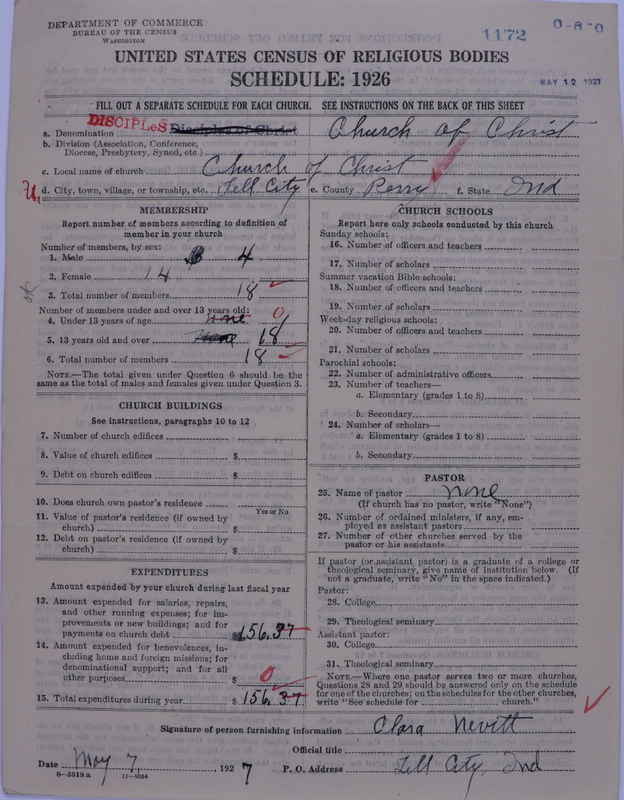 DEPARTMENT OF COMMERCE
BUREAU OF THE CENSUS
WASHINGTON
1172
0-6-0
UNITED STATES CENSUS OF RELIGIOUS BODIES
SCHEDULE: 1926
MAY 12 1927
FILL OUT A SEPARATE SCHEDULE FOR EACH CHURCH. SEE INSTRUCTIONS ON THE BACK OF THIS SHEET
DISCIPLES
a. Denomination Disciples of Christ Church of Christ
b. Division (Association, Conference, Diocese, Presbytery, Synod, etc.)
c. Local name of church Church of Christ
d. City, town, village, or township, etc. Tell City e. County Perry f. State Ind
MEMBERSHIP
Report number of members according to definition of member in your church
Number of members, by sex:
1. Male 4
2. Female 14
3. Total number of members 18
Number of members under and over 13 years old:
4. Under 13 years of age none 0
5. 13 years old and over None 18
6. Total number of members 18
NOTE.—The total given under Question 6 should be the same as the total of males and females given under Question 3.
CHURCH BUILDINGS
See instructions, paragraphs 10 to 12
7. Number of church edifices
8. Value of church edifices $
9. Debt on church edifices $
10. Does church own pastor's residence
Yes or No
11. Value of pastor's residence (if owned by church) $
12. Debt on pastor's residence (if owned by church) $
EXPENDITURES
Amount expended by your church during last fiscal year
13. Amount expended for salaries, repairs, and other running expenses; for improvements or new buildings; and for payments on church debt $156.37
14. Amount expended for benevolences, including home and foreign missions; for denominational support; and for all other purposes $ 0
15. Total expenditures during year $156.37
CHURCH SCHOOLS
Report here only schools conducted by this church
Sunday schools:
16. Number of officers and teachers
17. Number of scholars
Summer vacation Bible schools:
18. Number of officers and teachers
19. Number of scholars
Week-day religious schools:
20. Number of officers and teachers
21. Number of scholars
Parochial schools:
22. Number of administrative officers
23. Number of teachers—
a. Elementary (grades 1 to 8)
b. Secondary
24. Number of scholars—
a. Elementary (grades 1 to 8)
b. Secondary
PASTOR
25. Name of pastor none
(If church has no pastor, write "None")
26. Number of ordained ministers, if any, employed as assistant pastors
27. Number of other churches served by the pastor or his assistants
If pastor (or assistant pastor) is a graduate of a college or theological seminary, give name of institution below. (If not a graduate, write "No" in the space indicated.)
Pastor:
28. College
29. Theological seminary
Assistant pastor:
30. College
31. Theological seminary
NOTE.—Where one pastor serves two or more churches, Questions 28 and 29 should be answered only on the schedule for one of the churches; on the schedules for the other churches, write "See schedule for church."
Signature of person furnishing information Clara Nevitt
Official title
Date May 7, 1927 P. O. Address Tell City, Ind
8-5518a 11-9054